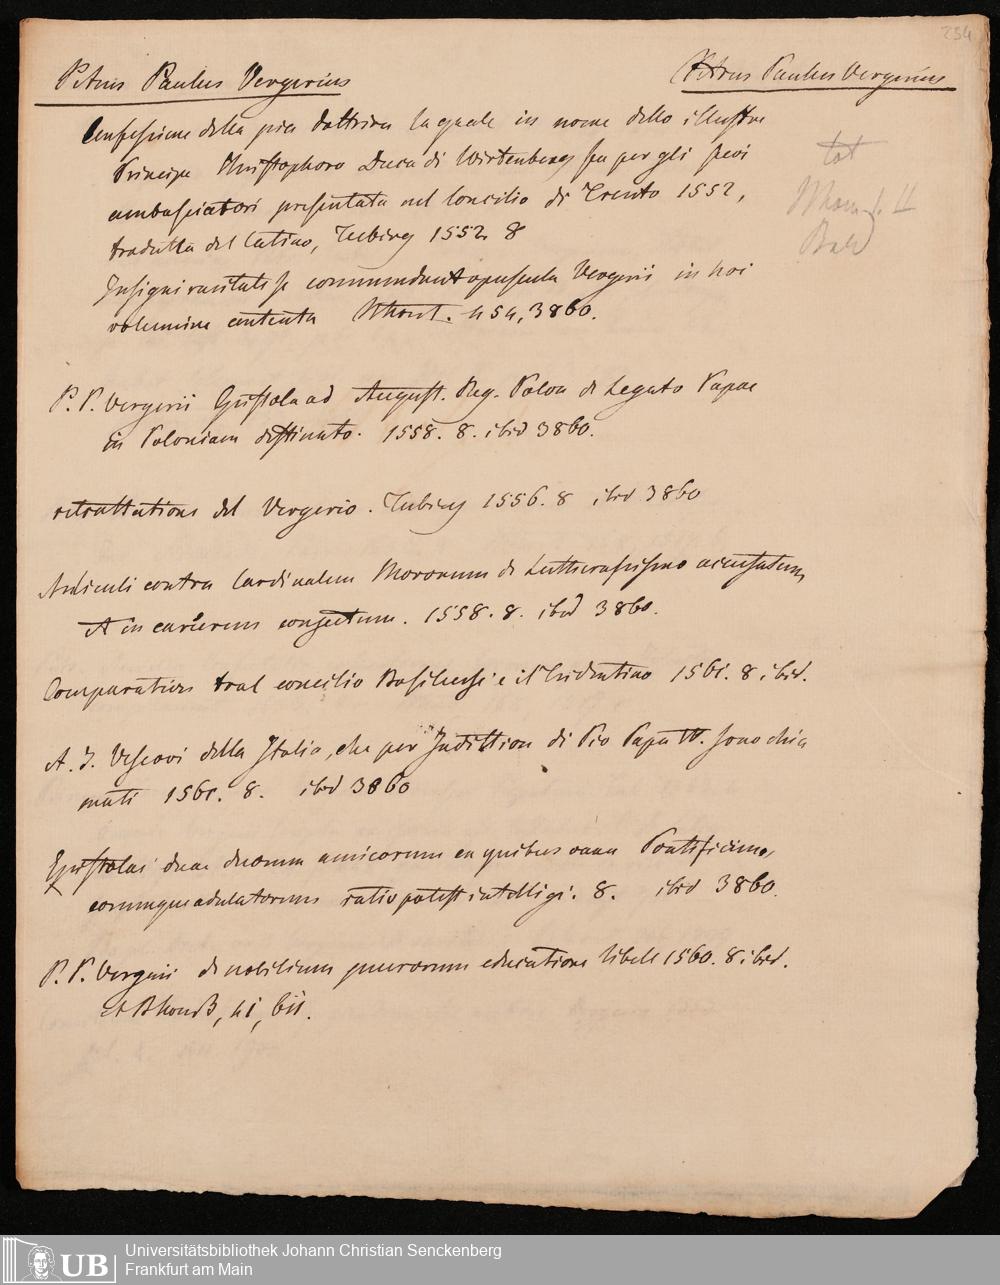 234
Petrus Paulus Vergerius
Petrus Paulus Vergerius
Confessione della pia dottrina la quale in nome dello illustre
Principe Christophoro Duca di Wirtenberg fu per gli suoi
ambasciatori presentata nel Concilio di Trento 1552,
tradutta del Latino, Tubing 1552. 8
Insigni raritate se commendant opuscula Vergerii in hoi
volumine contenta 3860.
P. P. Vergerii Epistola ad August. Reg. Polon de Legato Papae
in Poloniam destinato. 1558. 8. ibid 3860.
retrattatione del Vergerio. Tubing 1556. 8 ibid 3860
Articuli contra Cardinalem Moronum de Lutheranismo accusatum
et in carcerem conjectum. 1558. 8. ibid 3860.
Comparation tral concilio Basiliense e il Tridentino 1561. 8. ibid.
A. I. Vescovi della Italia, che per Indittion di Pio Papa IV. sono chia
mati 1561. 8. ibid 3860
Epistolae duae duorum amicorum ex quibus vana Pontificum,
eorumque adulatorum ratio potest intelligi. 8. ibid 3860.
P. P. Vergerii de nobilium puerorum educatione libell 1560. 8. ibid.
et
Universitätsbibliothek Johann Christian Senckenberg
Frankfurt am Main
UB